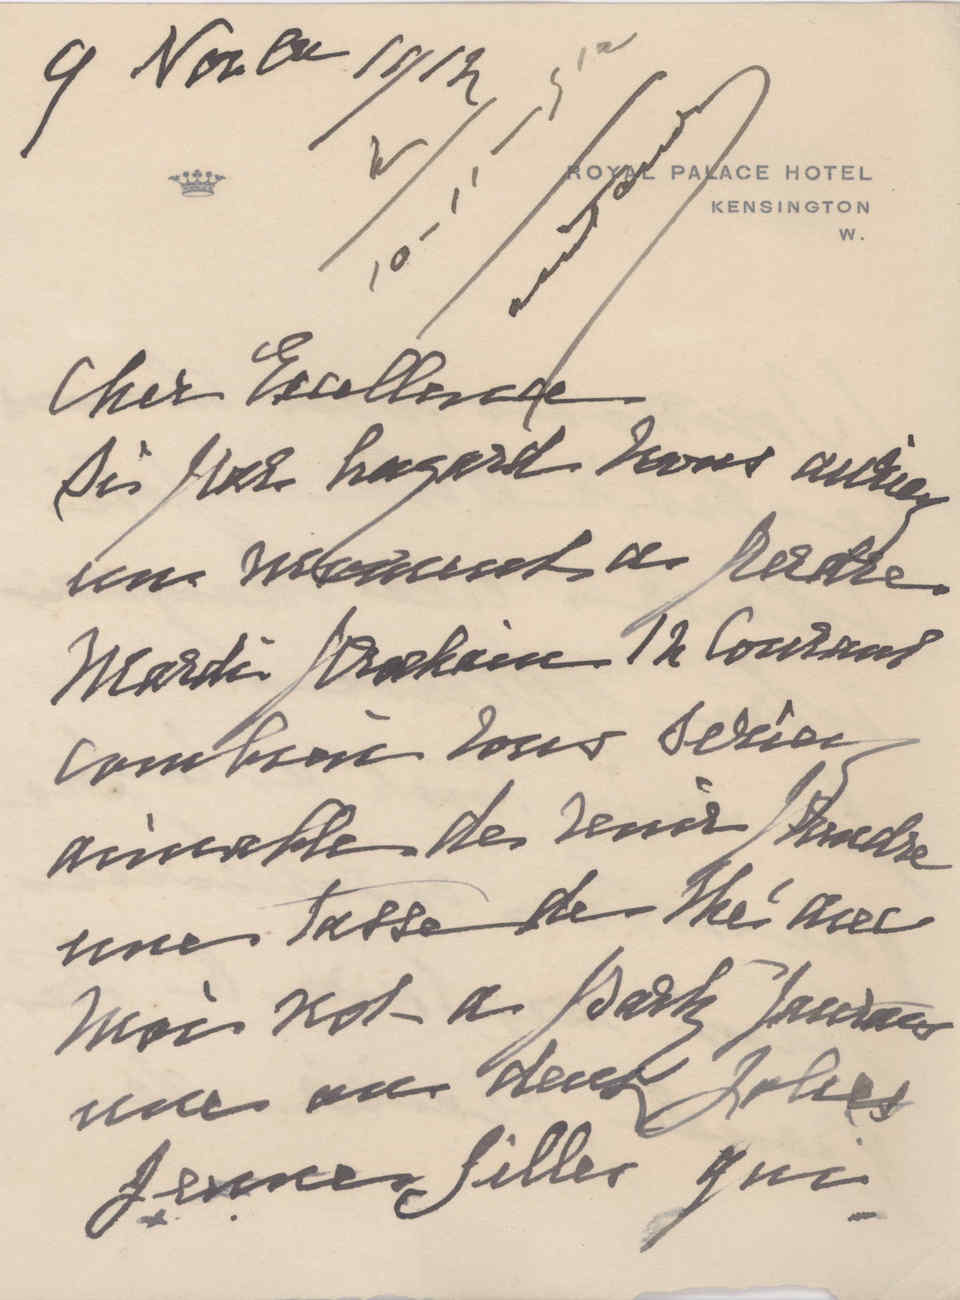 9 Novbre 1912
10-11-912
ROYAL PALACE HOTEL
KENSINGTON
W.
Cher Excellence
Si par hazard vous auriez
un moment a perdre
Mardi prochain 12 Courant
combien vous seriez
aimable de venir prendre
une tasse de thé avec
moi a part j'aurais
une ou deux jolies
jeunes filles qui